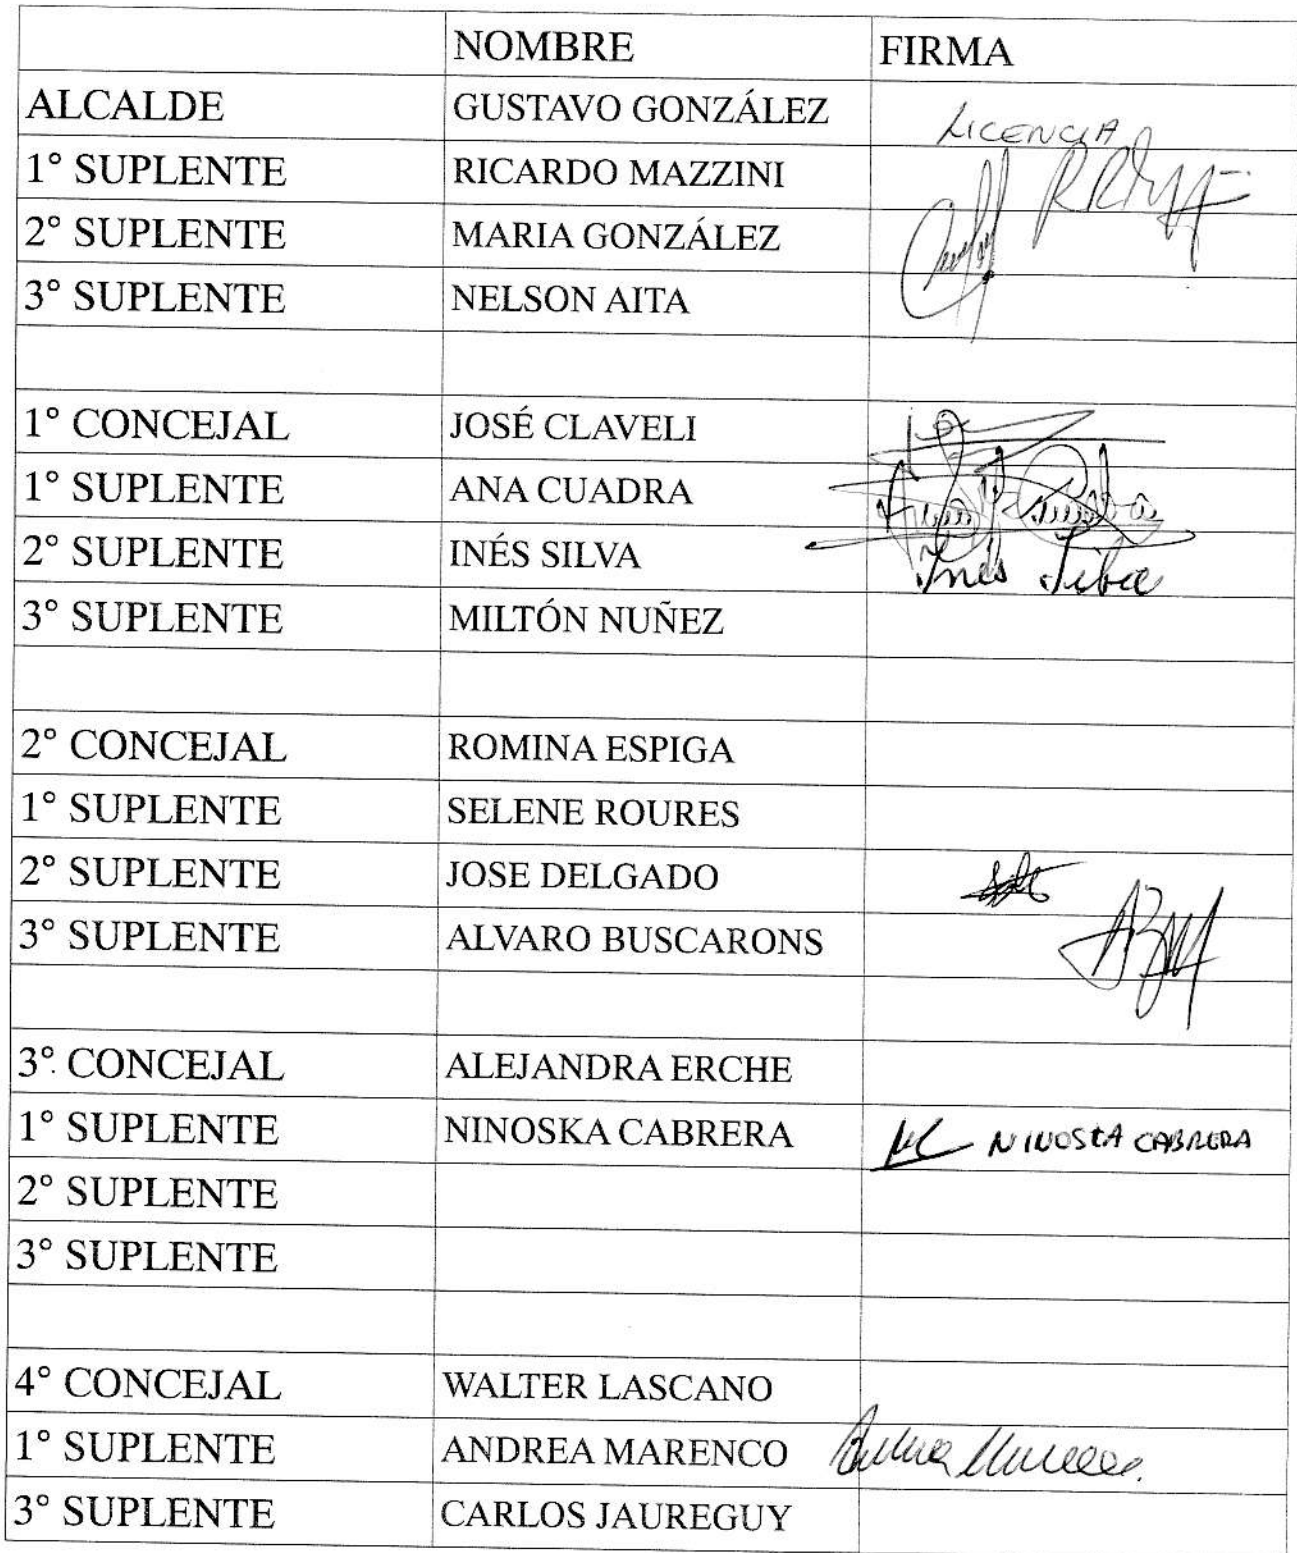 NOMBRE FIRMA
ALCALDE GUSTAVO GONZÁLEZ LICENCIA
1° SUPLENTE RICARDO MAZZINI
2° SUPLENTE MARIA GONZÁLEZ
3° SUPLENTE NELSON AITA
1° CONCEJAL JOSÉ CLAVELI
1° SUPLENTE ANA CUADRA
2° SUPLENTE INÉS SILVA Inés Silva
3° SUPLENTE MILTÓN NUÑEZ
2° CONCEJAL ROMINA ESPIGA
1° SUPLENTE SELENE ROURES
2° SUPLENTE JOSE DELGADO
3° SUPLENTE ALVARO BUSCARONS
3° CONCEJAL ALEJANDRA ERCHE
1° SUPLENTE NINOSKA CABRERA NC NINOSKA CABRERA
2° SUPLENTE
3° SUPLENTE
4° CONCEJAL WALTER LASCANO
1° SUPLENTE ANDREA MARENCO
3° SUPLENTE CARLOS JAUREGUY